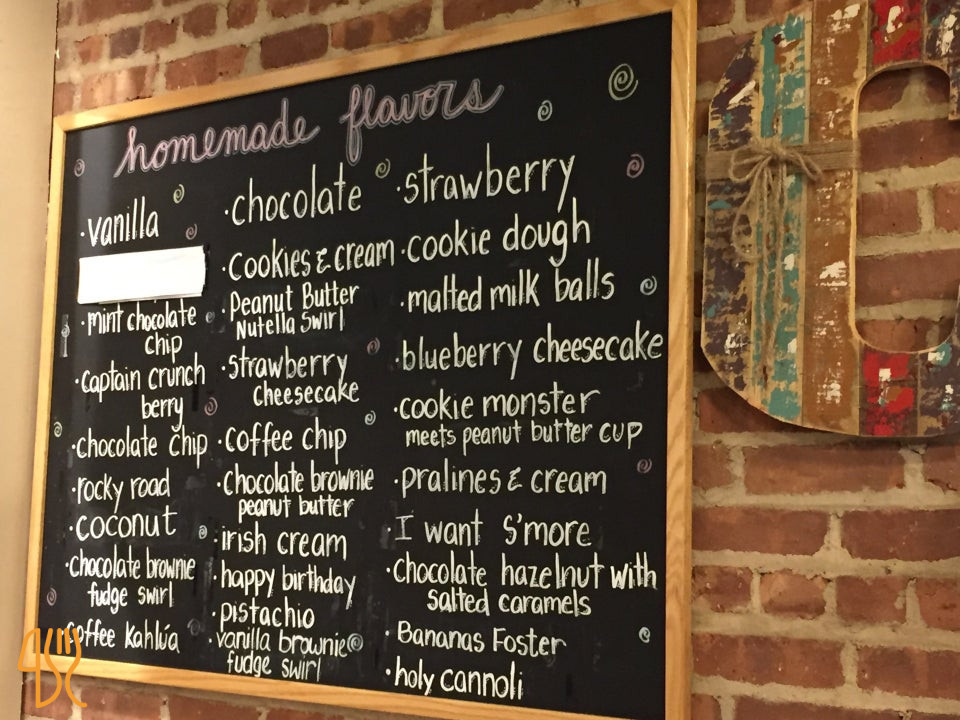 homemade flavors
· vanilla
· mint chocolate
chip
· captain crunch
berry
· chocolate chip
· rocky road
· coconut
· chocolate brownie
fudge swirl
coffee Kahlúa
· chocolate
· cookies & cream
· Peanut Butter
Nutella Swirl
· strawberry
cheesecake
· coffee chip
· chocolate brownie
peanut butter
· irish cream
· happy birthday
· pistachio
· vanilla brownie
fudge swirl
· strawberry
· cookie dough
· malted milk balls
· blueberry cheesecake
· cookie monster
meets peanut butter cup
· pralines & cream
· I want S'more
· chocolate hazelnut with
salted caramels
· Bananas Foster
· holy cannoli